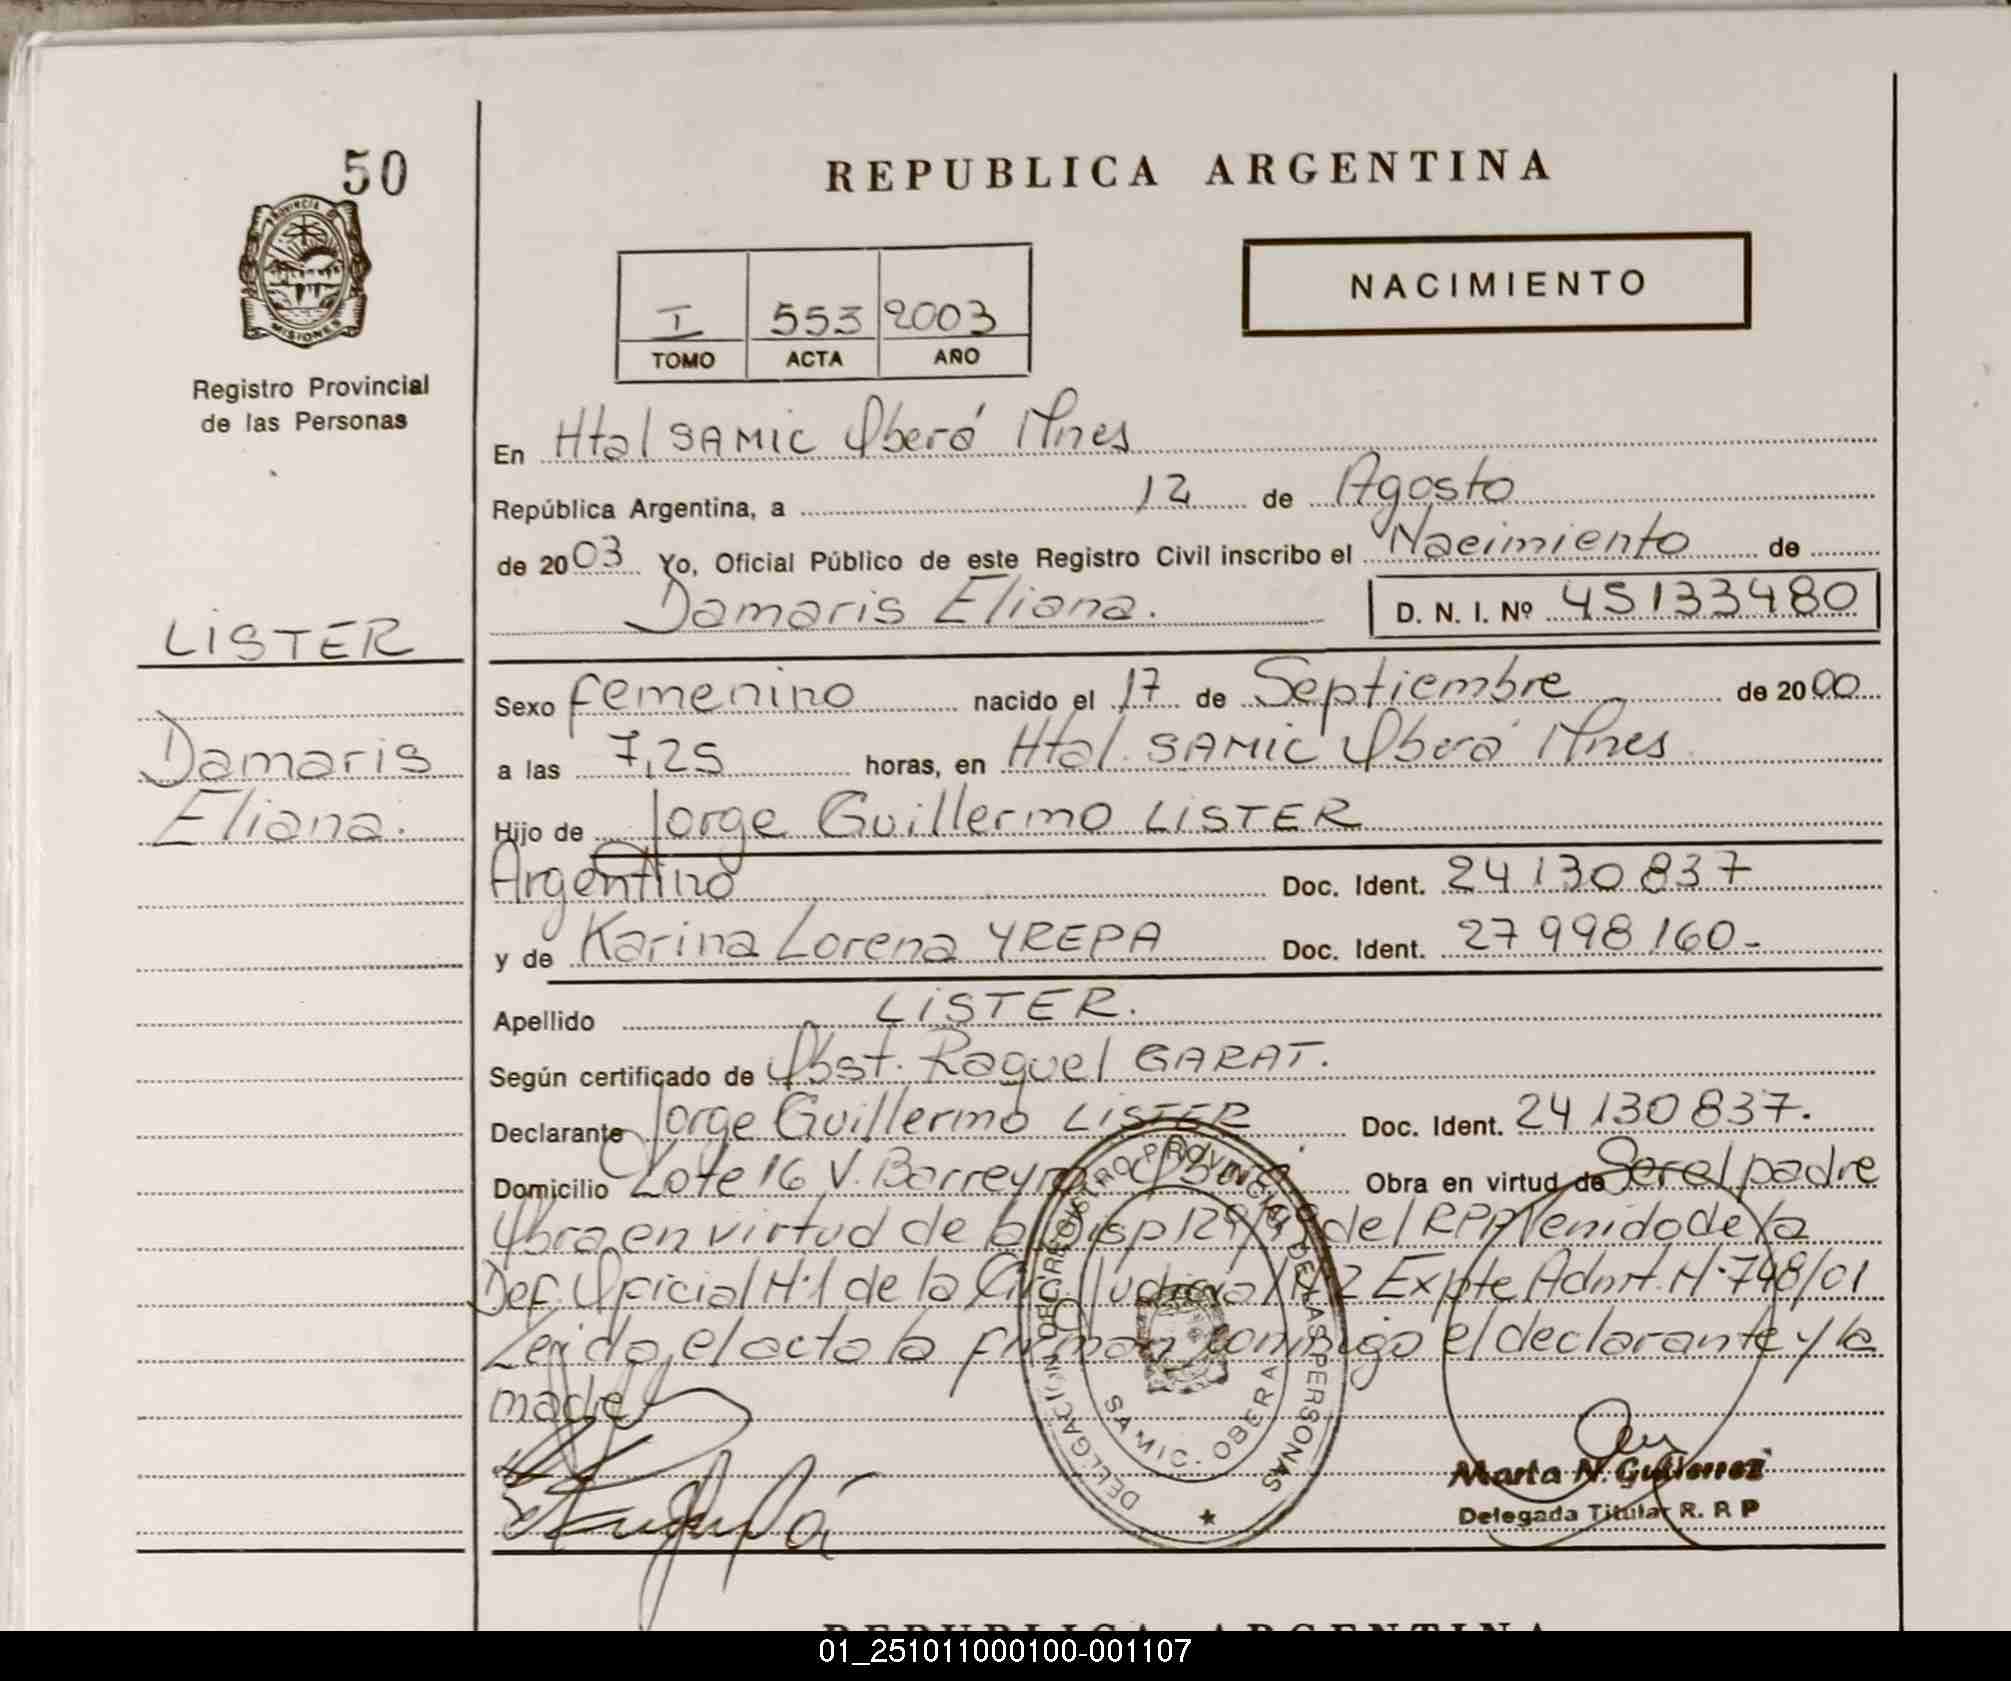 50
PROVINCIA DE
MISIONES
Registro Provincial
de las Personas
LISTER
Damaris
Eliana.
REPUBLICA ARGENTINA
I 553 2003
TOMO ACTA AÑO
NACIMIENTO
En Htal SAMIC Oberá Mnes
República Argentina, a 12 de Agosto
de 2003 Yo, Oficial Público de este Registro Civil inscribo el Nacimiento de
Damaris Eliana. D. N. I. Nº 45133480
Sexo femenino nacido el 17 de Septiembre de 2000
a las 7,25 horas, en Htal. SAMIC Oberá Mnes
Hijo de Jorge Guillermo LISTER
Argentino Doc. Ident. 24130837
y de Karina Lorena YREPA Doc. Ident. 27998160-
Apellido LISTER.
Según certificado de Obst. Raquel GARAT.
Declarante Jorge Guillermo LISTER Doc. Ident. 24130837.
Domicilio Lote 16 V. Barreyro Oberá. Obra en virtud de Ser el padre
Obra en virtud de la Disp 129/99 del RPP Venido de la
Def. Oficial Nº1 de la Circ Judicial Nº2 Expte Admt. Nº 748/01
Leida el acta la firman conmigo el declarante y la
madre
DELEGACION DEL REGISTRO PROVINCIAL DE LAS PERSONAS
SAMIC. OBERA
Marta N. Gutierrez
Delegada Titular R. P. P
REPUBLICA ARGENTINA
01_251011000100-001107